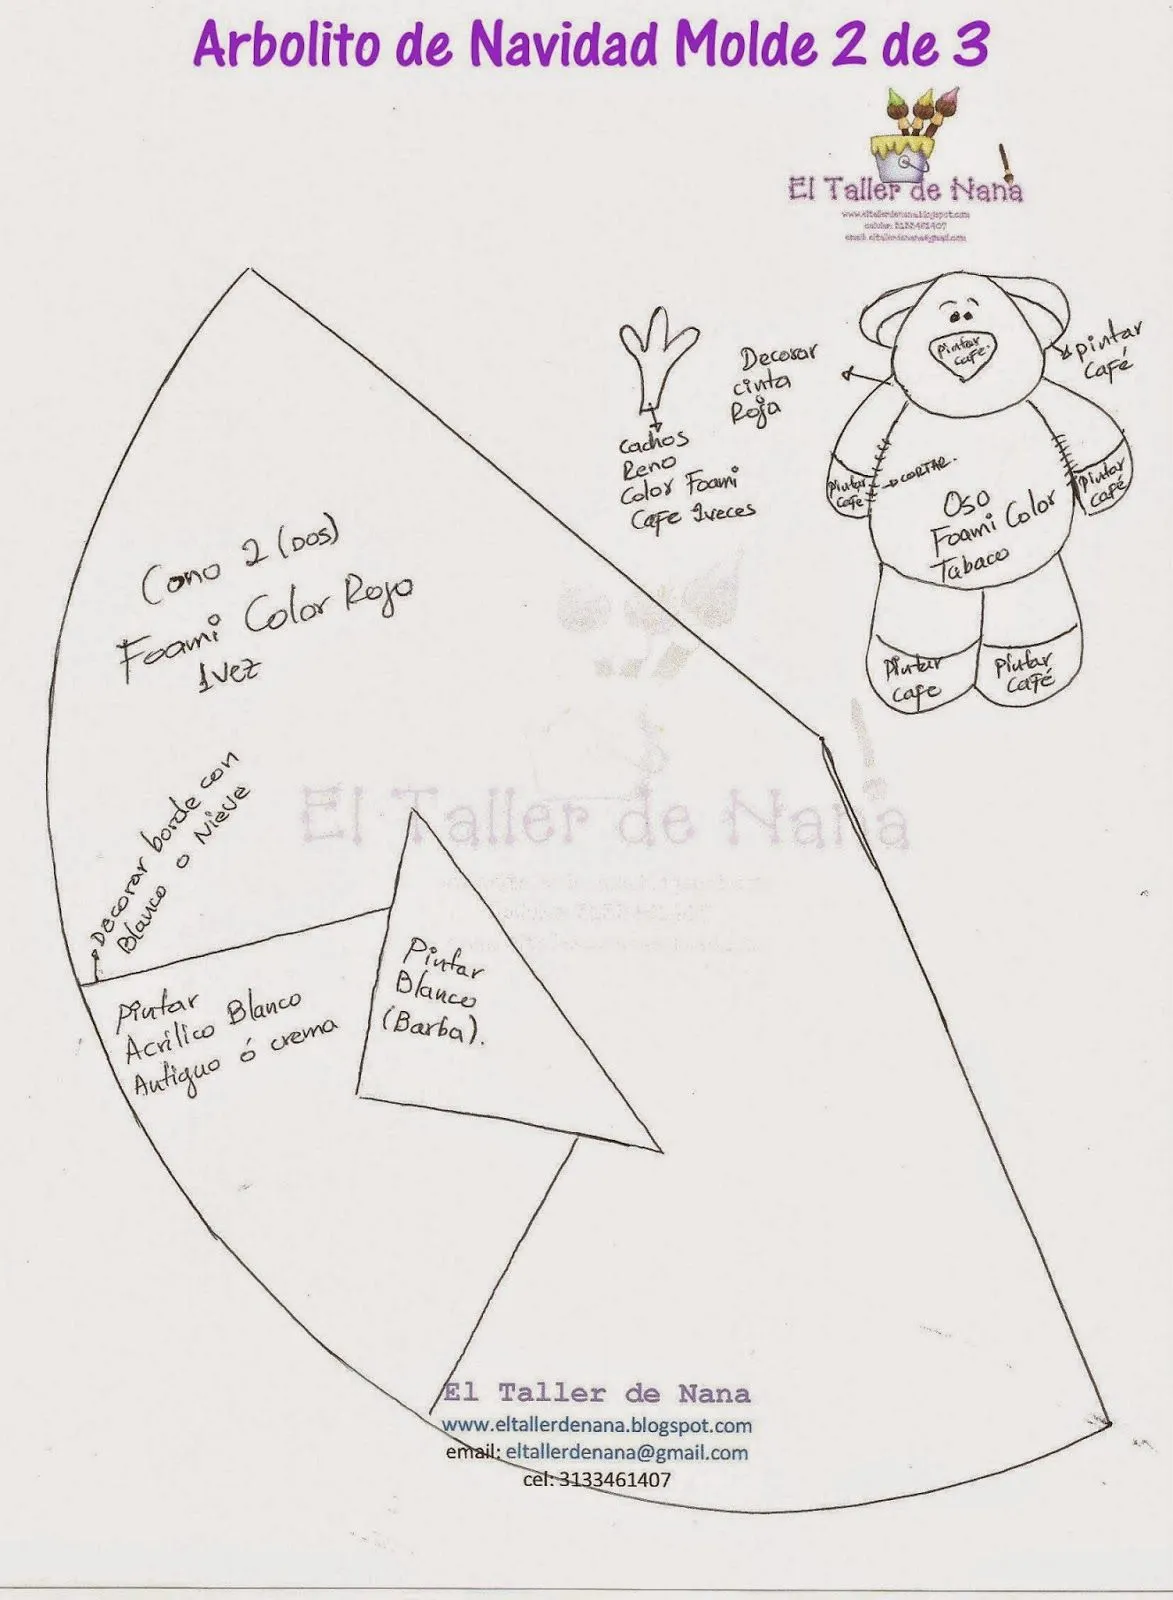 Arbolito de Navidad Molde 2 de 3
El Taller de Nana
www.eltallerdenana.blogspot.com
celular: 3133461407
email: eltallerdenana@gmail.com
Decorar
cinta
Roja
pintar
café
Pintar
café.
cachos
Reno
Color Foami
Cafe 2veces
Pintar
Cafe
CORTAR.
Pintar
café
Oso
Foami Color
Tabaco
Pintar
cafe
Pintar
Café
Cono 2 (DOS)
Foami Color Rojo
1 vez
El Taller de Nana
Decorar borde con
Blanco o Nieve
Pintar
Acrilico Blanco
Antiguo ó crema
Pintar
Blanco
(Barba).
El Taller de Nana
www.eltallerdenana.blogspot.com
email: eltallerdenana@gmail.com
cel: 3133461407